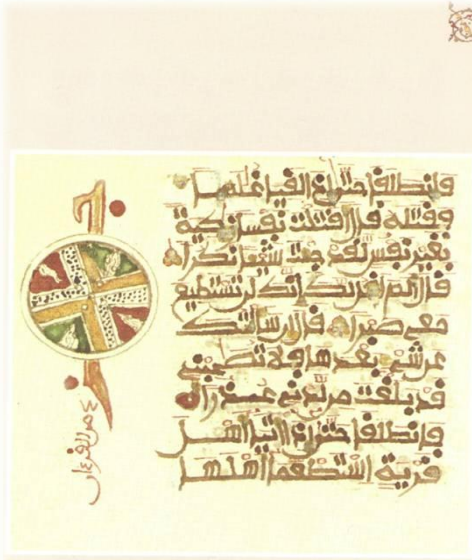 فانطلقا حتى إذا لقيا غلما
فقتله قال أقتلت نفسا زكية
بغير نفس لقد جئت شيئا نكرا
قال ألم أقل لك إنك لن تستطيع
معي صبرا قال إن سألتك
عن شيء بعدها فلا تصحبني
قد بلغت من لدني عذرا
فانطلقا حتى إذا أتيا أهل
قرية استطعما أهلها
جزء من القرءان